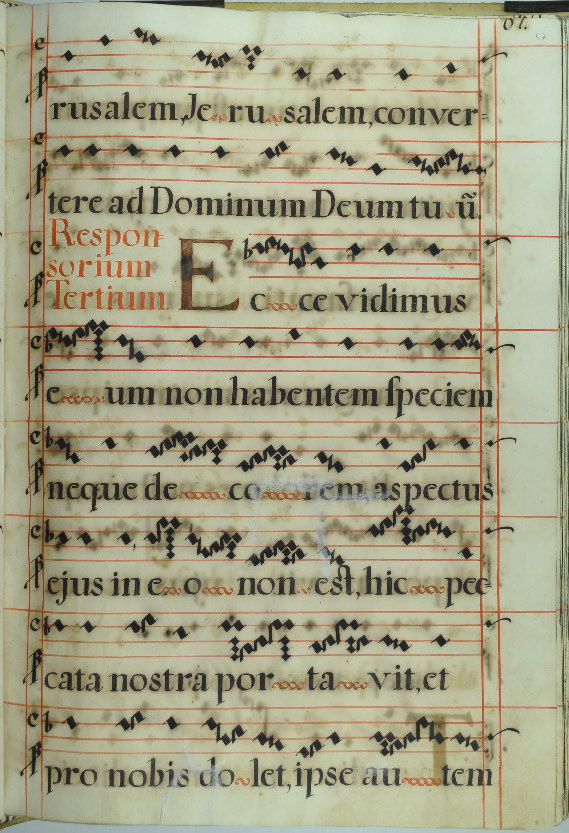 67.
rusalem, Jerusalem, conver-
tere ad Dominum Deum tuũ.
Respon-
sorium
Tertium
Ecce vidimus
eum non habentem ſpeciem
neque decorem aspectus
ejus in eo non est, hic pec-
cata nostra portavit, et
pro nobis dolet, ipse autem